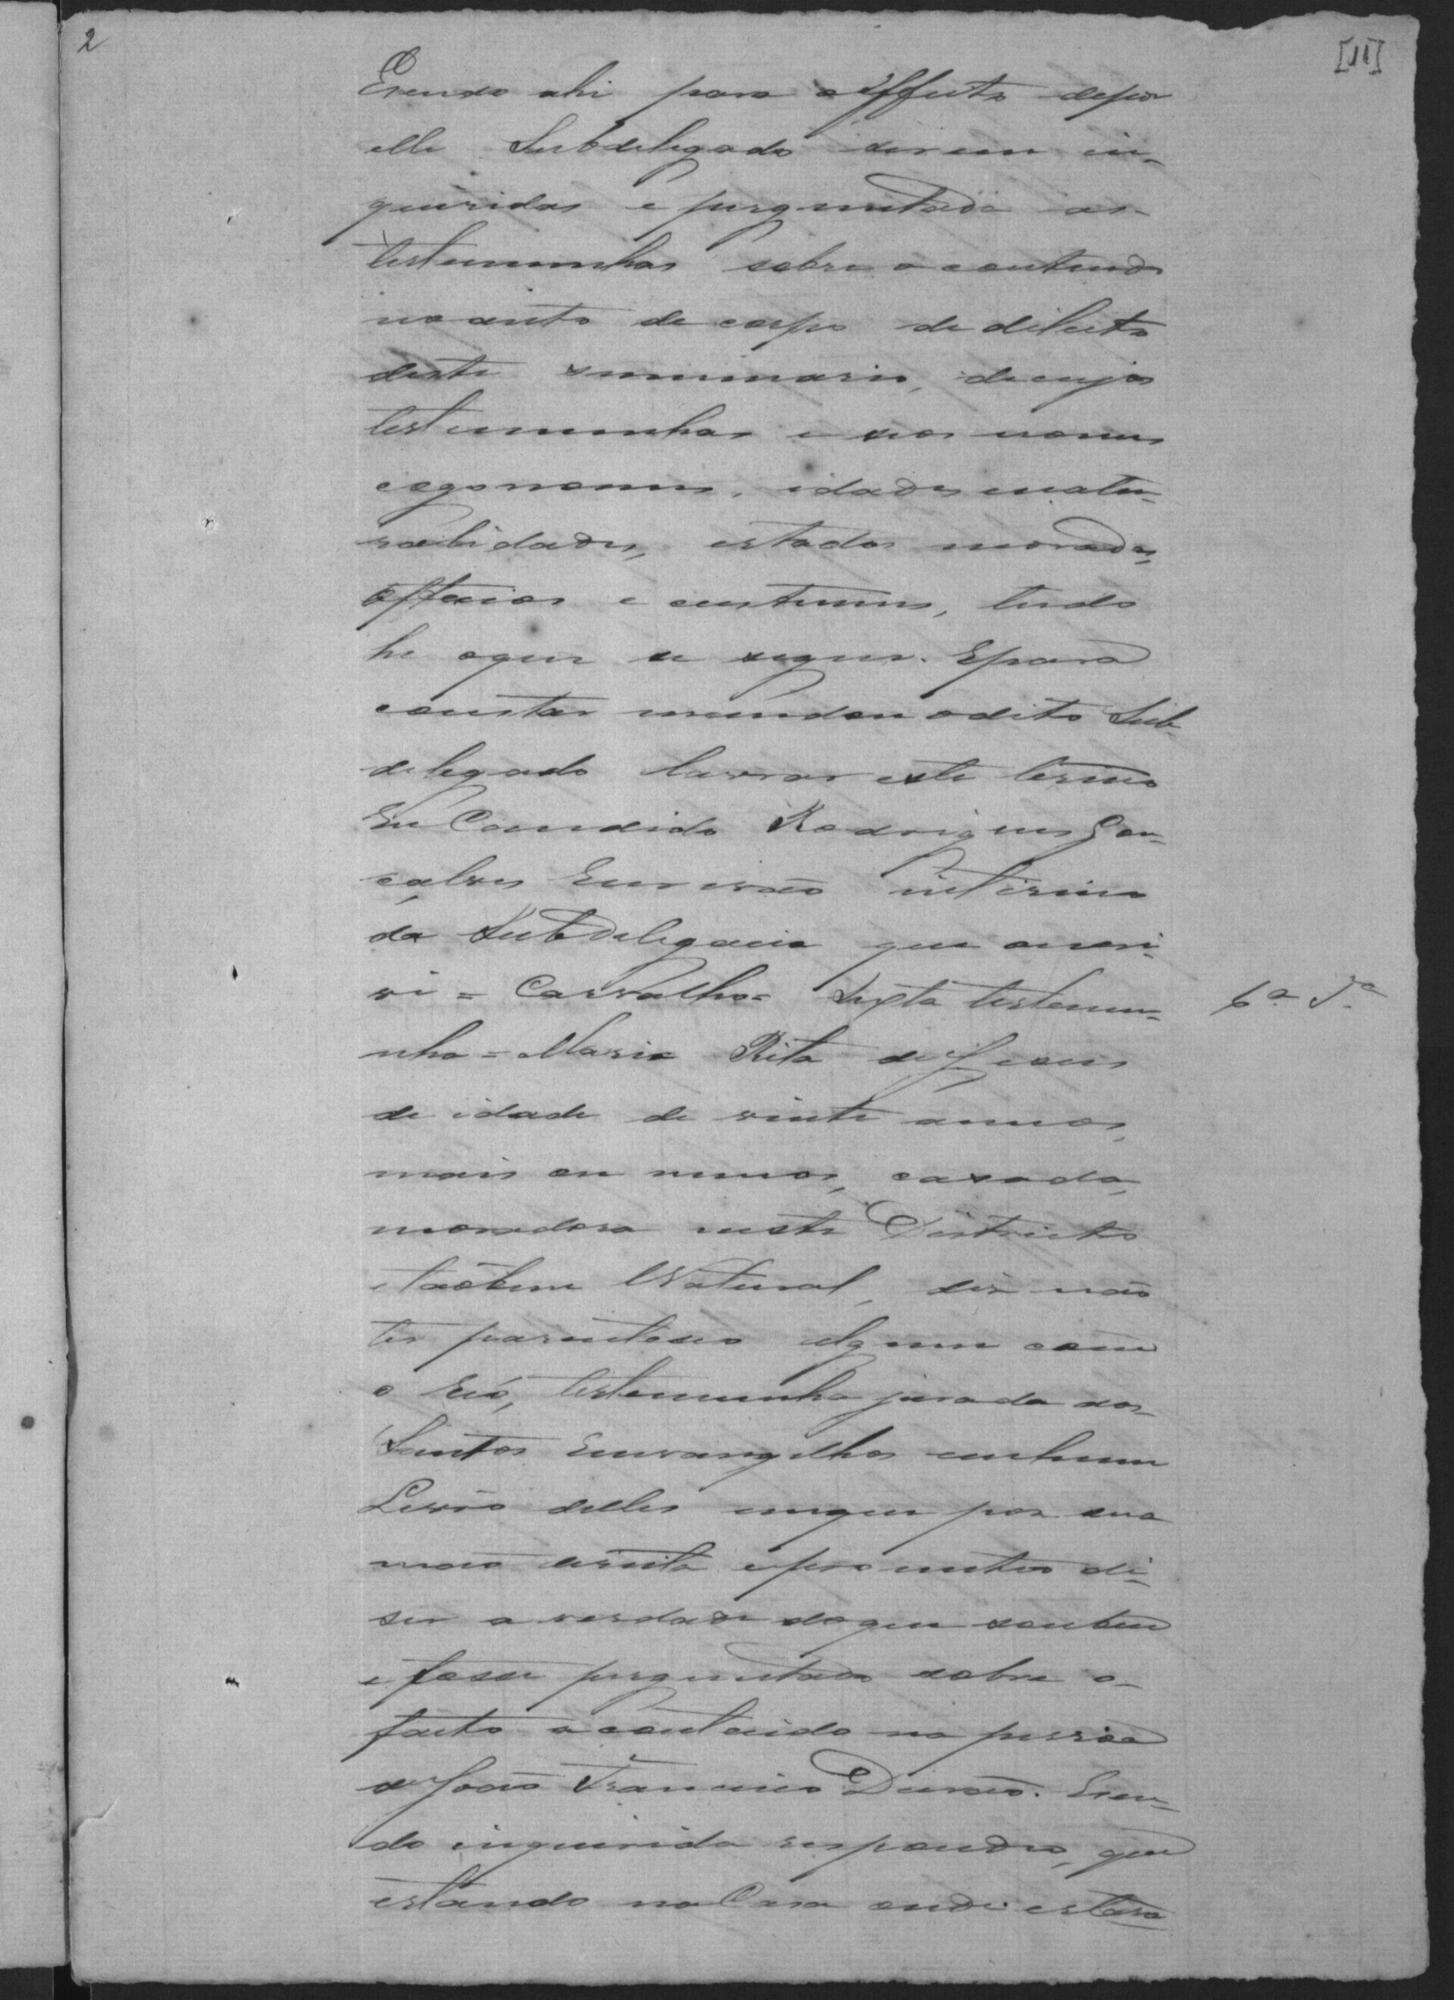 2
[11]
E sendo ahi para o effeito de por
elle Subdelegado serem in-
queridas e perguntadas as
testemunhas sobre o contendo
no auto de corpo de delicto
deste summario, de cujas
testemunhas e seos nomes
cognomes, idades natu-
ralidades, estados moradas,
officios e custumes, tudo
he o que se segue. E para
constar mandou o dito Sub-
delegado lavrar este termo
Eu Candido Rodrigues Gon-
çalves Escrivão interino
da Subdelegacia que escre-
vi = Carvalho = Sexta testemu-
nha = Maria Rita de Jesus
de idade de vinte annos,
mais ou menos, casada,
moradora neste Districto
e taobem Natural, diz não
ter parentesco algum com
o Reó, testemunha jurada aos
Santos Euvangelhos em hum
Livro delles em que por sua
mão direita e prometeo di-
ser a verdade do que soubese
e fosse perguntado sobre o
facto acontecido na pessoa
de João Francisco Durão. E sen-
do inquerida respondeo, que
estando na Casa onde estava
6ª Tª